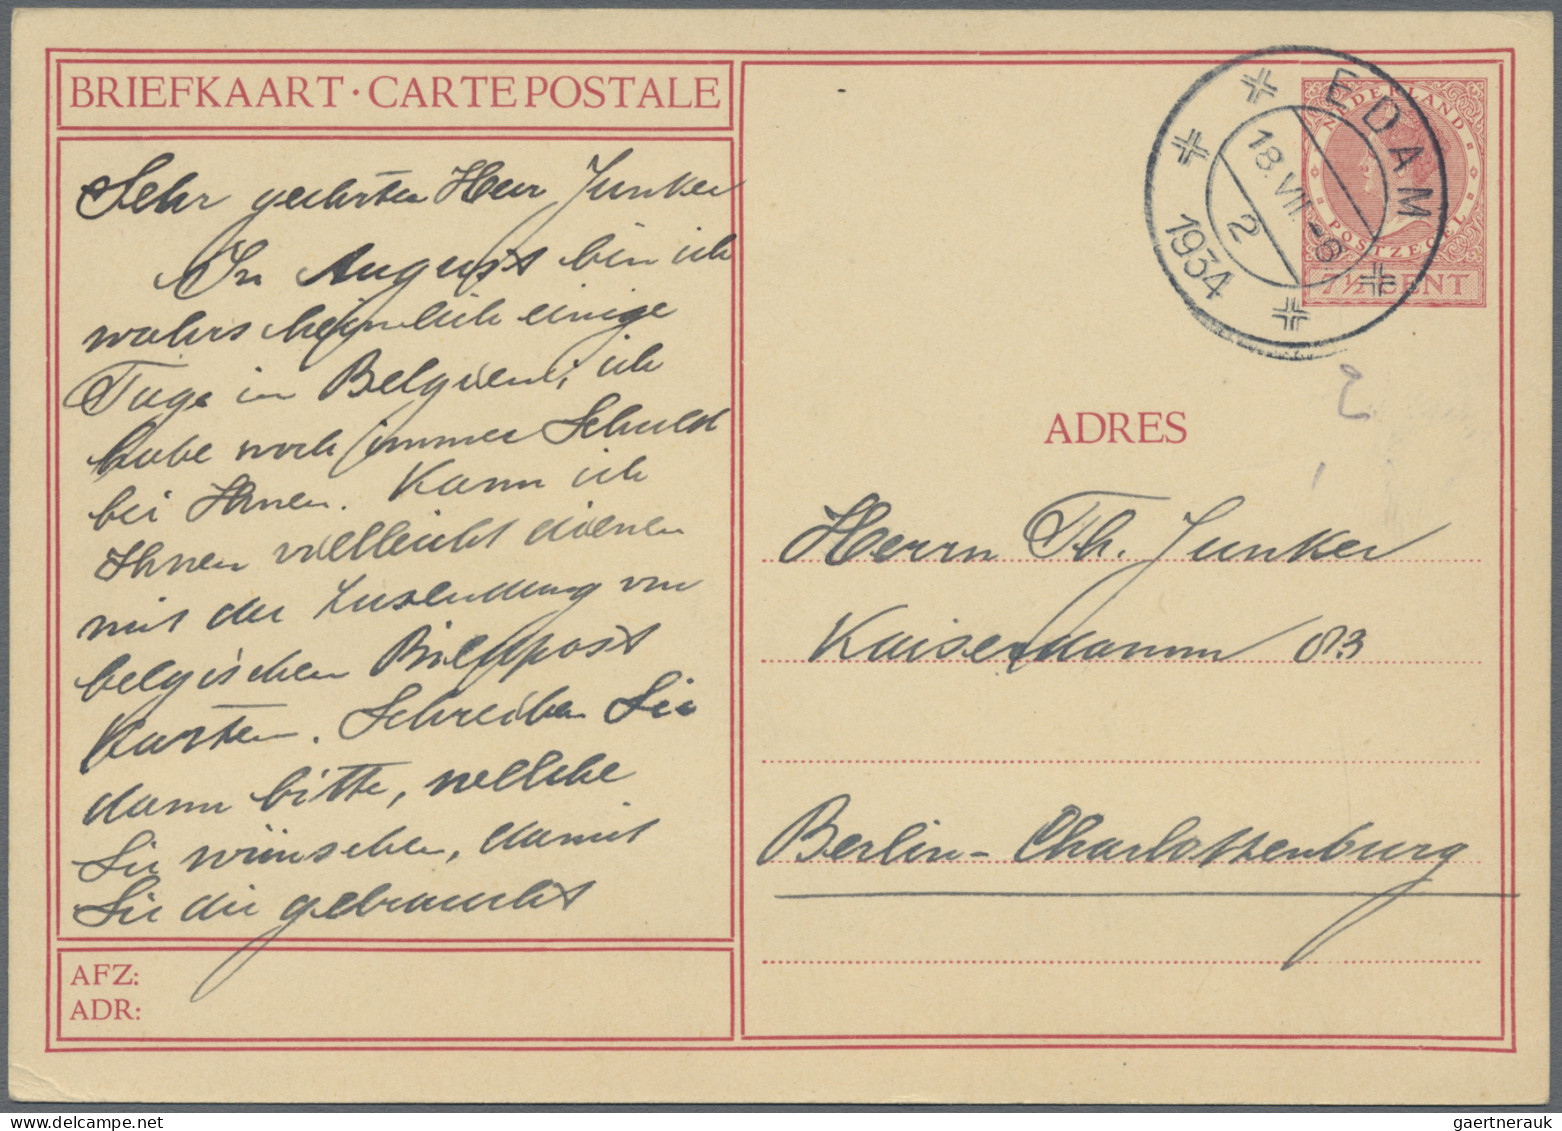 BRIEFKAART · CARTE POSTALE
Sehr geehrter Herr Junker
Im August bin ich
wahrscheinlich einige
Tage in Belgien, ich
habe noch immer Schuld
bei Ihnen. Kann ich
Ihnen vielleicht dienen
mit der Zusendung von
belgischen Bildpost
Karten. Schreiben Sie
dann bitte, welche
Sie wünschen, damit
Sie die gebraucht
AFZ:
ADR:
NEDERLAND
POSTZEGEL
7½ CENT
EDAM
18.VII.-8
2
1934
ADRES
Herrn Th. Junker
Kaiserdamm 83
Berlin-Charlottenburg
gaertnerauk